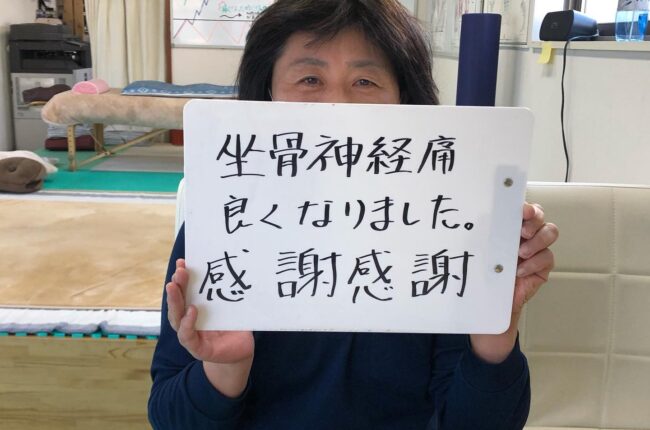 坐骨神経痛
良くなりました。
感謝感謝